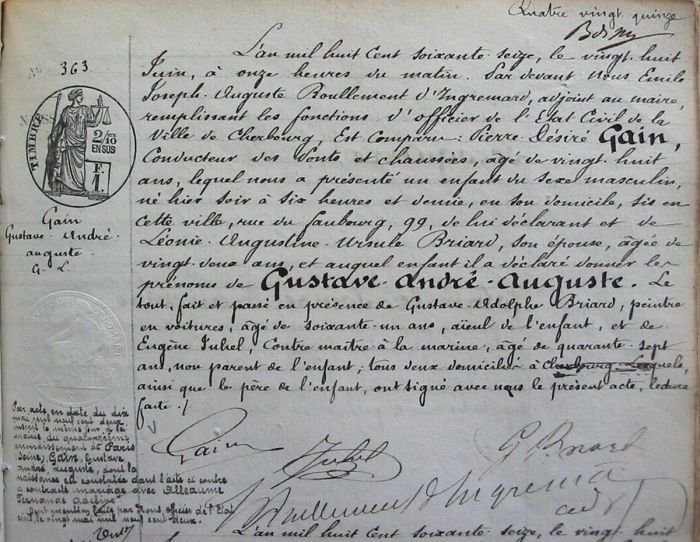 Quatre vingt quinze
N° 363
TIMBRE
2/10
EN SUS
F.
1.
Gain
Gustave-André-
auguste
G. L.
L'an mil huit cent soixante-seize, le vingt huit
Juin, à onze heures du matin. Par devant Nous Emile
Joseph-Auguste Boullement d'Ingremard, adjoint au maire,
remplissant les fonctions d'Officier de l'Etat Civil de la
Ville de Cherbourg, Est Comparu: Pierre-Désiré Gain,
Conducteur des Ponts et chaussées, âgé de vingt-huit
ans, lequel nous a présenté un enfant du sexe masculin,
né hier soir à six heures et demie, en son domicile, sis en
cette ville, rue du faubourg, 99, de lui déclarant et de
Léonie-Augustine-Ursule Briard, son épouse, âgée de
vingt-deux ans, et auquel enfant il a déclaré donner les
prénoms de Gustave-André-Auguste. Le
tout fait et passé en présence de Gustave-Adolphe Briard, peintre
en voitures, âgé de soixante-un ans, aïeul de l'enfant, et de
Eugène Juhel, Contre maître à la marine, âgé de quarante-sept
ans, non parent de l'enfant; tous deux domiciliés à Cherbourg. Lesquels,
ainsi que le père de l'enfant, ont signé avec nous le présent acte, lecture
faite./
Par acte, en date du dix
mai mil neuf cent deux,
inscrit le même jour, à la
mairie du quatorzième
arrondissement de Paris
(Seine), Gain, Gustave
andré auguste, dont la
naissance est constatée dans l'acte ci contre
a contracté mariage avec Alleaume
Fernande
Dont mention faite par Nous, officier de l'Etat
civil, le vingt mai mil neuf cent deux.
Gain Juhel G Briard
Boullement d'Ingremard
L'an mil huit cent soixante-seize, le vingt huit